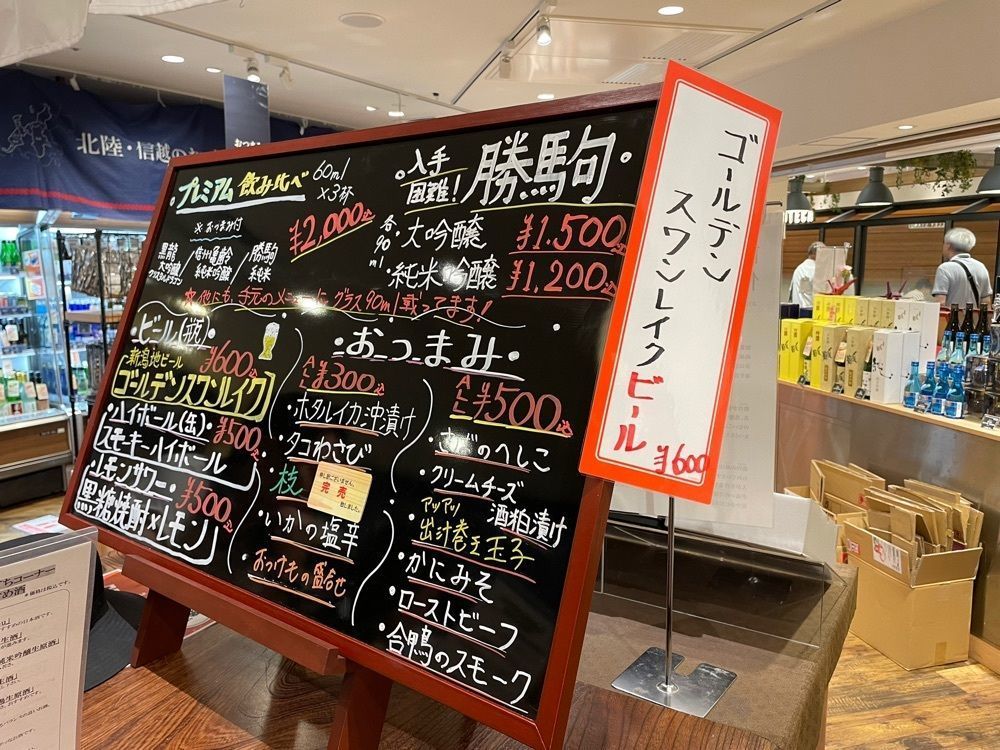 北陸・信越の
プレミアム 飲み比べ 60ml ×3杯
※おつまみ付
¥2,000込
黒龍 大吟醸 クリスタルドラゴン
信州亀齢 純米吟醸
勝駒 純米
入手困難! 勝駒
各90ml
・大吟醸 ¥1,500込
・純米吟醸 ¥1,200込
☆他にも、手元のメニューにグラス90ml載ってます!
・ビール(瓶)・
新潟地ビール ¥600込
ゴールデンスワンレイク
・ハイボール(缶)・ ¥500込
スモーキーハイボール
・レモンサワー・ ¥500込
黒糖焼酎×レモン
・おつまみ・
ALL ¥300込
・ホタルイカ沖漬け
・タコわさび
・枝
申し訳ございません。
完売
致しました。
・いかの塩辛
・おつけもの盛合せ
ALL ¥500込
・さばのへしこ
・クリームチーズ酒粕漬け
・アツアツ出汁巻き玉子
・かにみそ
・ローストビーフ
・合鴨のスモーク
ゴールデン
スワンレイクビール
¥600